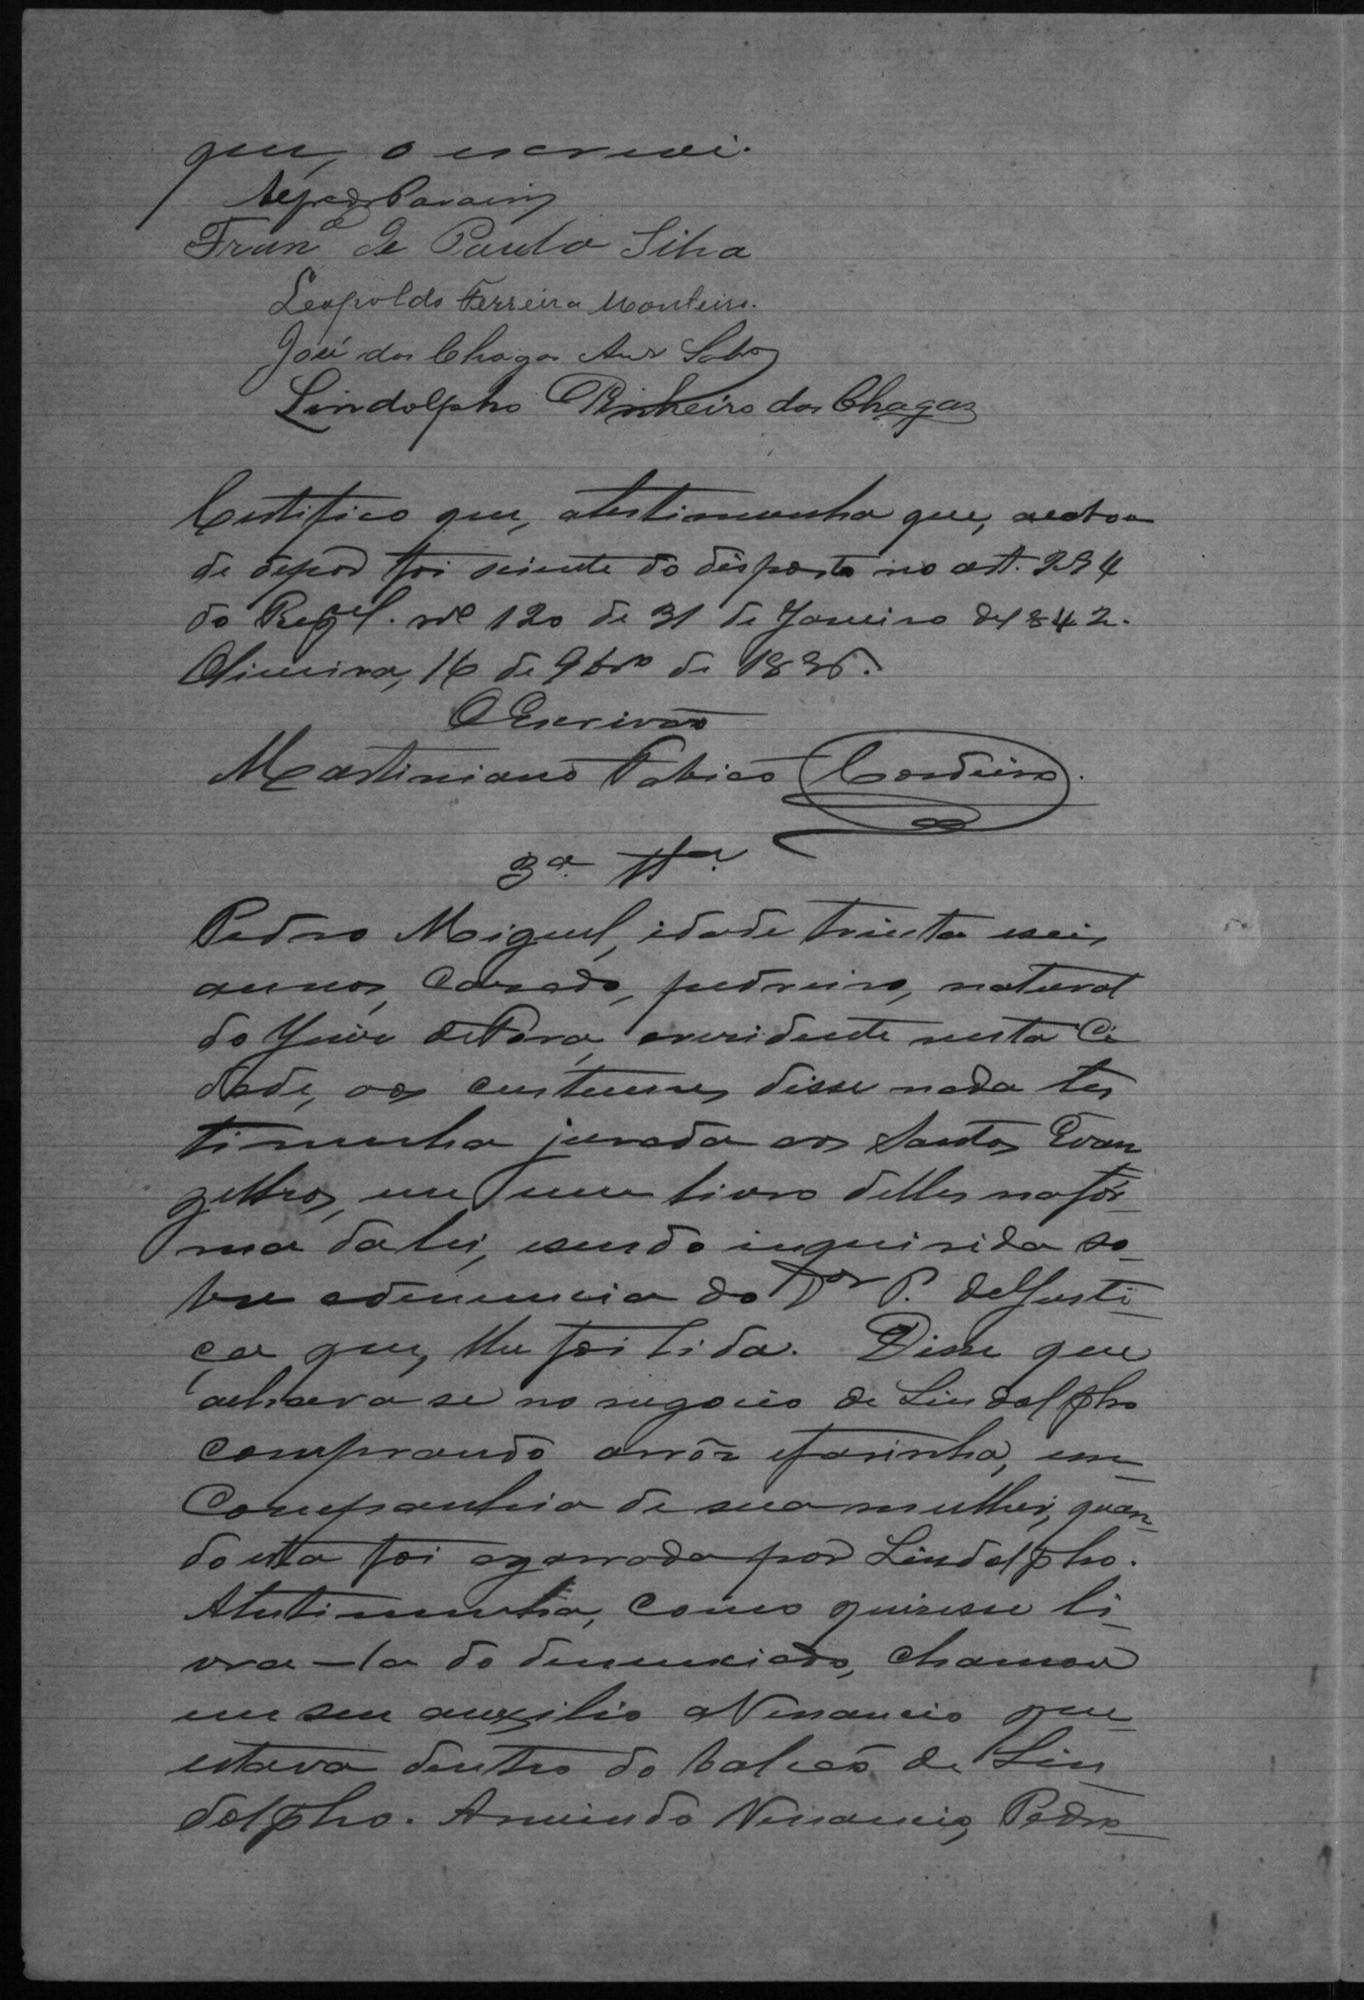 que, o escrevi.
Franco de Paula Silva
Leopoldo Ferreira Monteiro.
José das Chagas And Sobro
Lindolpho Pinheiro das Chagas
Certifico que, atestimunha que, acaba
de depor foi sciente do disposto no art. 294
do Regul. nº 120 de 31 de Janeiro de 1842.
Oliveira, 16 de 9bro de 1895.
O Escrivão
Martiniano Fabico Cordeiro.
3ª Tta.
Pedro Miguel, idade trinta eseis
annos, casado, pedreiro, natural
do Juiz deFora, eresidente nesta Ci
dade, aos custumes disse nada tes
timunha jurada aos Santos Evan
gelhos, em um livro delles nafór-
ma dalei, esendo inquirida so-
bre adenuncia do Dor P. deJusti-
ça que, lhe foi lida. Disse que
achava-se no negocio de Lindolpho
comprando arrôz efarinha, em
Companhia de sua mulher, quan-
do esta foi agarrada por Lindolpho.
Atestimunha, como quizesse li-
vra-la do denunciado, chamou
em seu auxilio aVenancio que
estava dentro do balcão de Lin
dolpho. Annuindo Venancio, Pedro